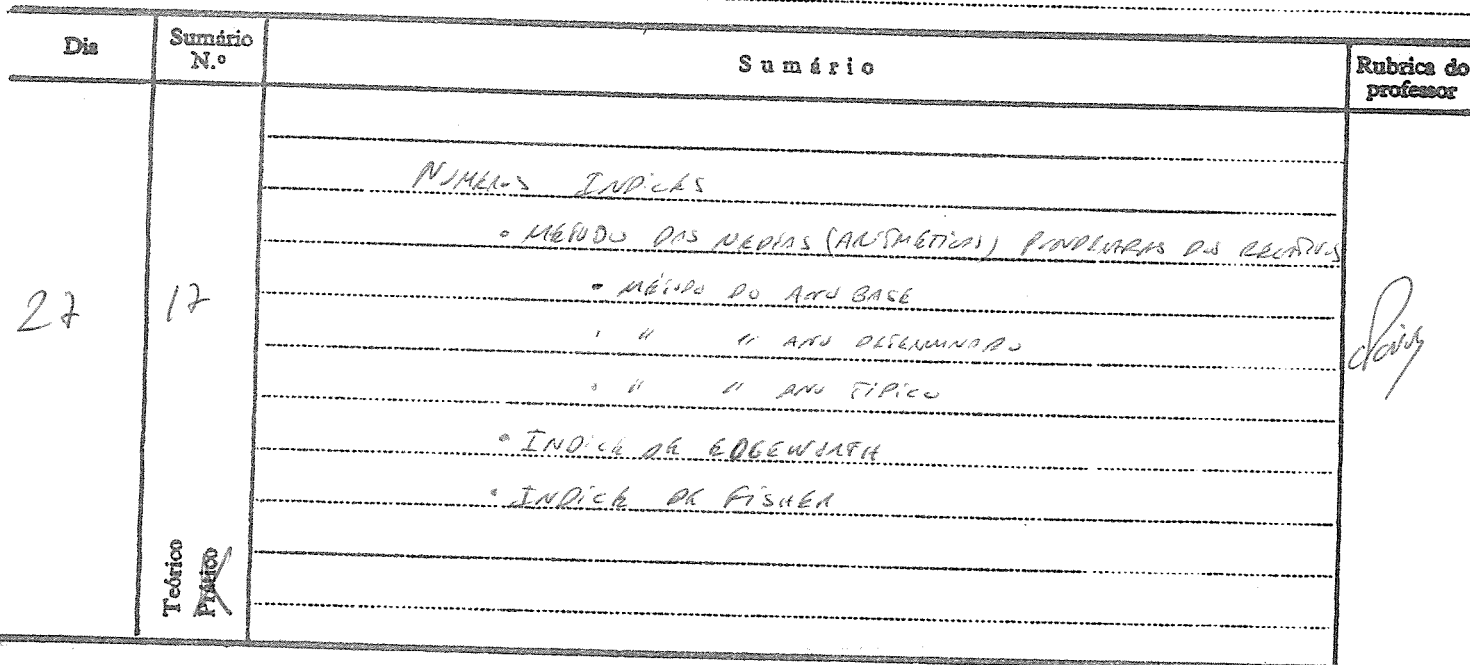 Dia
Sumário N.º
Sumário
Rubrica do professor
27
17
NUMEROS INDICES
• MÉTODO DAS MEDIAS (ARITMÉTICAS) PONDERADAS DOS RELATIVOS
• MÉTODO DO ANO BASE
• " " ANO DETERMINADO
• " " ANO TÍPICO
• INDICE DE EDGEWORTH
• INDICE DE FISHER
Teórico
Prático